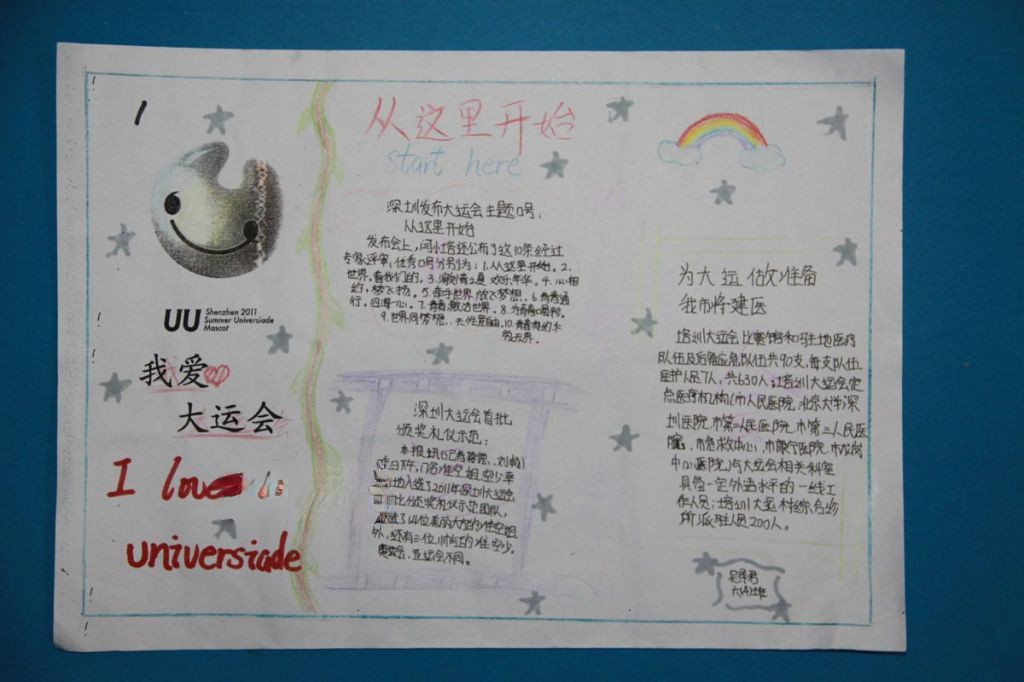 UU
Shenzhen 2011
Summer Universiade
Mascot
我爱
大运会
I love
universiade
从这里开始
start here
深圳发布大运会主题口号：
从这里开始
发布会上，闫小培还公布了这10条经过
专家评审，优秀口号分别为：1.从这里开始。2.
世界，看我们的。3.激情之夏 欢乐年华。4.心相
约，梦飞扬。5.牵手世界 放飞梦想。6.青春通
行，四海一心。7.青春激活世界。8.为青春喝彩。
9.世界同梦想，天性更自由。10.青春
无界。
深圳大运会首批
颁奖礼仪示范：
本报讯（记者
近日下午，
地入选了2011年深圳大运会
颁奖礼仪示范团队，
了14位美丽大方的准空姐
外，还有三位帅气的准空少。
奥运会、亚运会不同。
为大运做准备
我市将建医
培训大运会比赛馆和驻地医疗
队伍及后备应急队伍共90支，每支队伍
医护人员7人，共630人；培训大运会定
点医疗机构（市人民医院，北京大学深
圳医院，市第二人民医院，市第三人民医
院，市急救中心，市康宁医院，市龙岗
中心医院）与大运会相关科室
具备一定外语水平的一线工
作人员；培训大运村综合诊
所派驻人员200人。